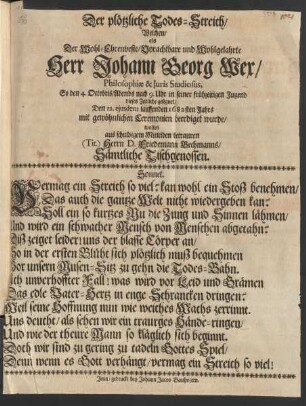 Der plötzliche Todes-Streich/
Welchen/
als
Der Wohl-Ehrenveste/Vorachtbare und Wohlgelahrte
Herr Johann Georg Wex/
Philosophiæ & Juris Studiosus,
Es den 4. Octobris Abends nach 9 Uhr in seiner frühzeitigen Jugend
dieses Zeitliche gesegnet/
Dem 12. ejusdem lauffenden 1682sten Jahrs
mit gewöhnlichen Ceremonien beerdiget wurde/
aus schuldigem Mitleiden betrauren
(Tit.) Herrn D. Friedemann Bechmanns/
Sämtliche Tischgenossen.
Sonnet.
Vermag ein Streich so viel? kan wohl ein Stoß benehmen/
Das auch die gantze Welt nicht wiedergeben kan?
Soll ein so kurtzes Nu die Zung und Sinnen lähmen/
Und wird ein schwacher Mensch von Menschen abgethan?
Diß zeiget leider! uns der blasse Cörper an/
So in der ersten Blüht sich plötzlich muß bequehmen
Vor unsern Musen-Sitz zu gehn die Todes-Bahn.
Ach unverhoffter Fall! was wird vor Leid und Grämen
Das edle Vater-Hertz in enge Schrancken dringen?
Weil seine Hoffnung nun wie weiches Wachs zerrinnt.
Uns deucht/ als sehen wir ein traurges Hände-ringen/
Und wie der theure Mann so kläglich sich beginnt.
Doch wir sind zu gering zu tadeln Gottes Spiel/
Dann wenn es Gott verhängt/vermag ein Streich so viel!
Jena/ gedruckt bey Johann Jacob Bauhofern.